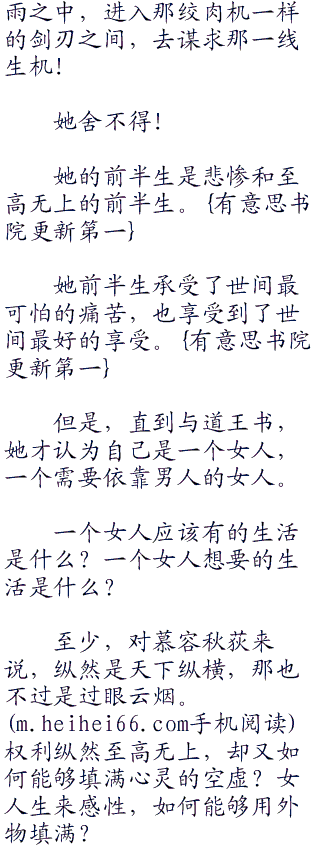 雨之中，进入那绞肉机一样
的剑刃之间，去谋求那一线
生机！
她舍不得！
她的前半生是悲惨和至
高无上的前半生。{有意思书
院更新第一}
她前半生承受了世间最
可怕的痛苦，也享受到了世
间最好的享受。{有意思书院
更新第一}
但是，直到与道王书，
她才认为自己是一个女人，
一个需要依靠男人的女人。
一个女人应该有的生活
是什么？一个女人想要的生
活是什么？
至少，对慕容秋荻来
说，纵然是天下纵横，那也
不过是过眼云烟。
(m.heihei66.com手机阅读)
权利纵然至高无上，却又如
何能够填满心灵的空虚？女
人生来感性，如何能够用外
物填满？